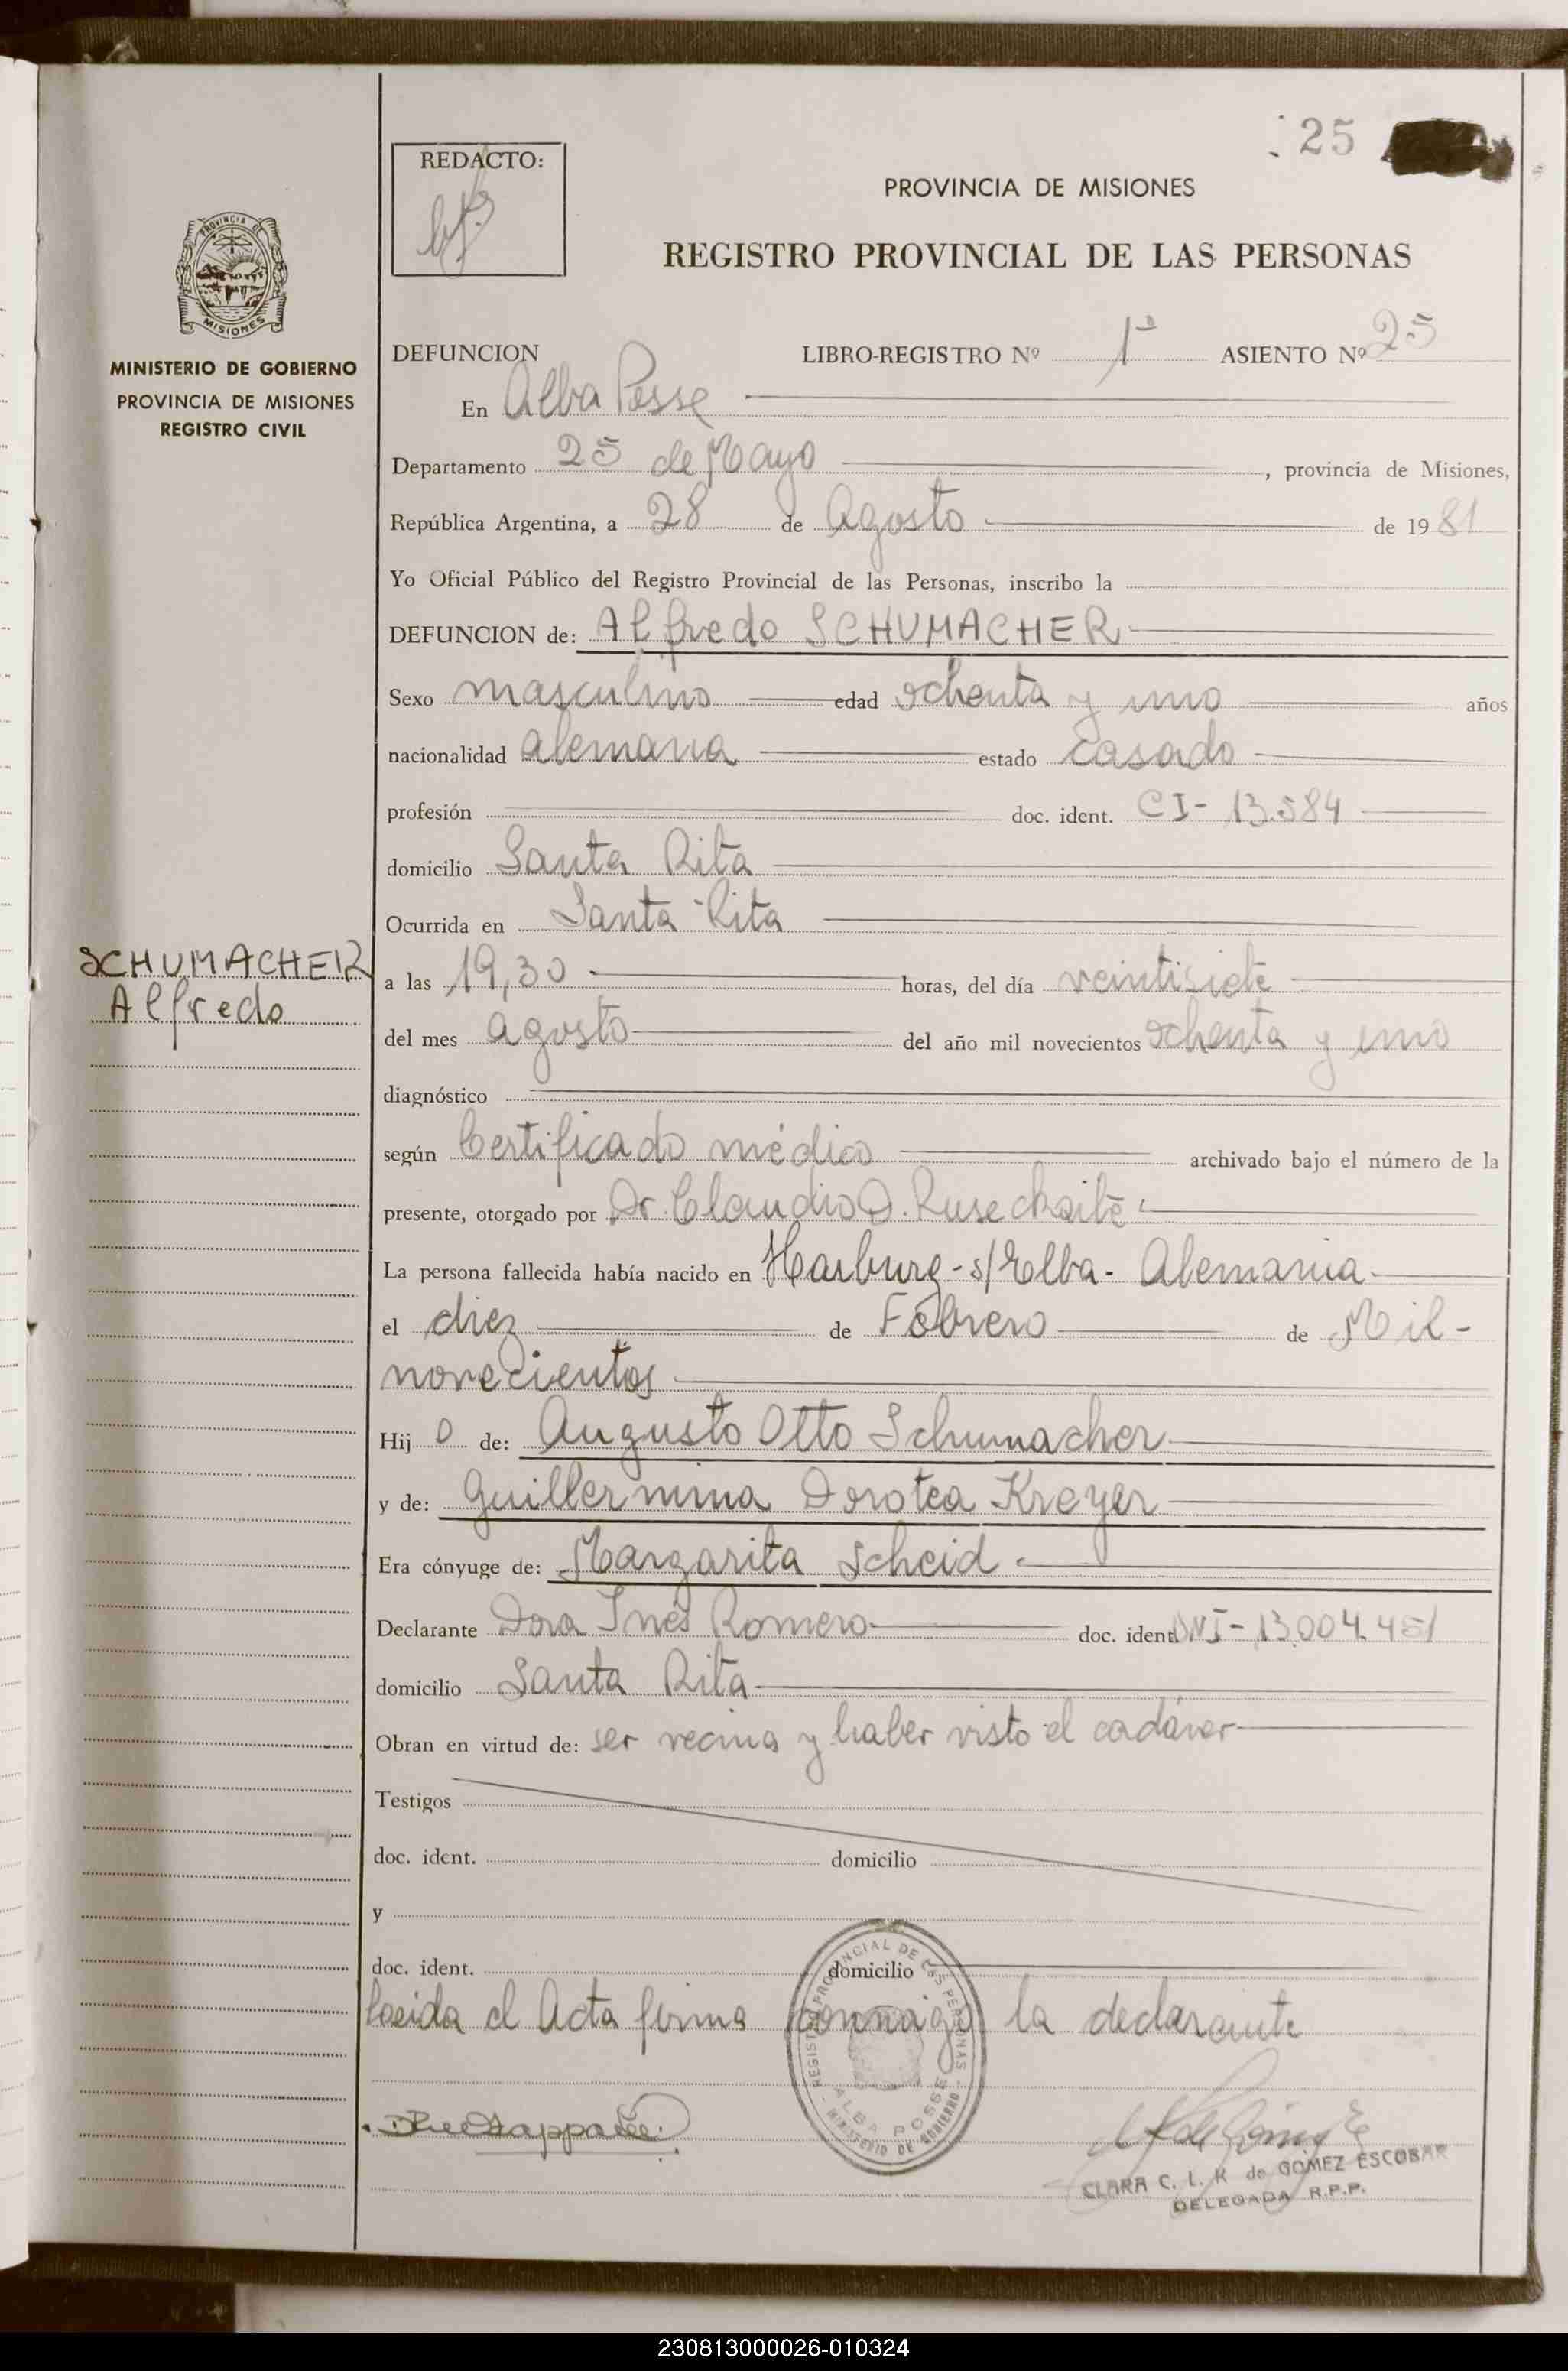 : 25
REDACTO:
PROVINCIA DE MISIONES
REGISTRO PROVINCIAL DE LAS PERSONAS
PROVINCIA DE
MISIONES
MINISTERIO DE GOBIERNO
PROVINCIA DE MISIONES
REGISTRO CIVIL
DEFUNCION LIBRO-REGISTRO Nº 1º ASIENTO Nº 25
En Alba Posse
Departamento 25 de Mayo, provincia de Misiones,
República Argentina, a 28 de Agosto de 1981
Yo Oficial Público del Registro Provincial de las Personas, inscribo la
DEFUNCION de: Alfredo SCHUMACHER
Sexo masculino edad ochenta y uno años
nacionalidad alemana estado Casado
profesión doc. ident. CI- 13.584
domicilio Santa Rita
Ocurrida en Santa Rita
SCHUMACHER
Alfredo
a las 19,30 horas, del día veintisiete
del mes agosto del año mil novecientos ochenta y uno
diagnóstico
según Certificado médico archivado bajo el número de la
presente, otorgado por Dr. Claudio D.
La persona fallecida había nacido en Harburg-s/Elba- Alemania
el diez de Febrero de Mil-
novecientos
Hijo de: Augusto Otto Schumacher
y de: Guillermina Dorotea Kreyer
Era cónyuge de: Margarita Scheid
Declarante Dora Inés Romero doc. ident. DNI- 13.004.451
domicilio Santa Rita
Obran en virtud de: ser vecina y haber visto el cadáver
Testigos
doc. ident. domicilio
y
doc. ident. domicilio
Leida el Acta firma conmigo la declarante
REGISTRO PROVINCIAL DE LAS PERSONAS
ALBA POSSE
MINISTERIO DE GOBIERNO
CLARA C. L. K de GOMEZ ESCOBAR
DELEGADA R.P.P.
230813000026-010324